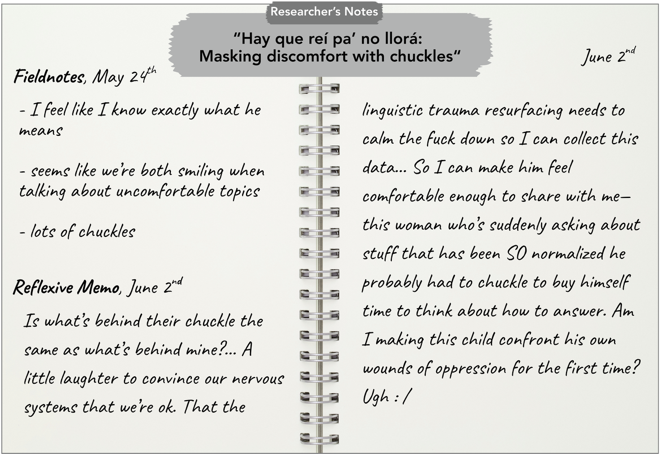 Researcher's Notes
“Hay que reí pa’ no llorá:
Masking discomfort with chuckles”
Fieldnotes, May 24th
- I feel like I know exactly what he
means
- seems like we're both smiling when
talking about uncomfortable topics
- lots of chuckles
Reflexive Memo, June 2nd
Is what's behind their chuckle the
same as what's behind mine?... A
little laughter to convince our nervous
systems that we're ok. That the
June 2nd
linguistic trauma resurfacing needs to
calm the fuck down so I can collect this
data... So I can make him feel
comfortable enough to share with me—
this woman who's suddenly asking about
stuff that has been SO normalized he
probably had to chuckle to buy himself
time to think about how to answer. Am
I making this child confront his own
wounds of oppression for the first time?
Ugh : /